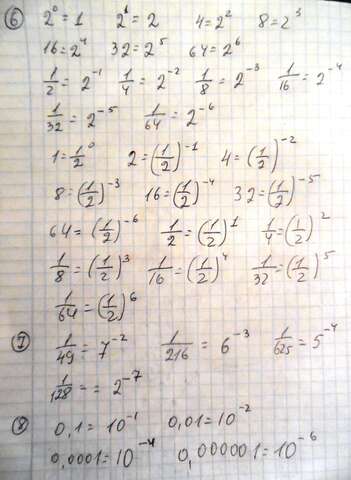 ⑥ 2⁰ = 1 2¹ = 2 4 = 2² 8 = 2³
16 = 2⁴ 32 = 2⁵ 64 = 2⁶
1/2 = 2⁻¹ 1/4 = 2⁻² 1/8 = 2⁻³ 1/16 = 2⁻⁴
1/32 = 2⁻⁵ 1/64 = 2⁻⁶
1 = 1/2⁰ 2 = (1/2)⁻¹ 4 = (1/2)⁻²
8 = (1/2)⁻³ 16 = (1/2)⁻⁴ 32 = (1/2)⁻⁵
64 = (1/2)⁻⁶ 1/2 = (1/2)¹ 1/4 = (1/2)²
1/8 = (1/2)³ 1/16 = (1/2)⁴ 1/32 = (1/2)⁵
1/64 = (1/2)⁶
⑦ 1/49 = 7⁻² 1/216 = 6⁻³ 1/625 = 5⁻⁴
1/128 = = 2⁻⁷
⑧ 0,1 = 10⁻¹ 0,01 = 10⁻²
0,0001 = 10⁻⁴ 0,000001 = 10⁻⁶